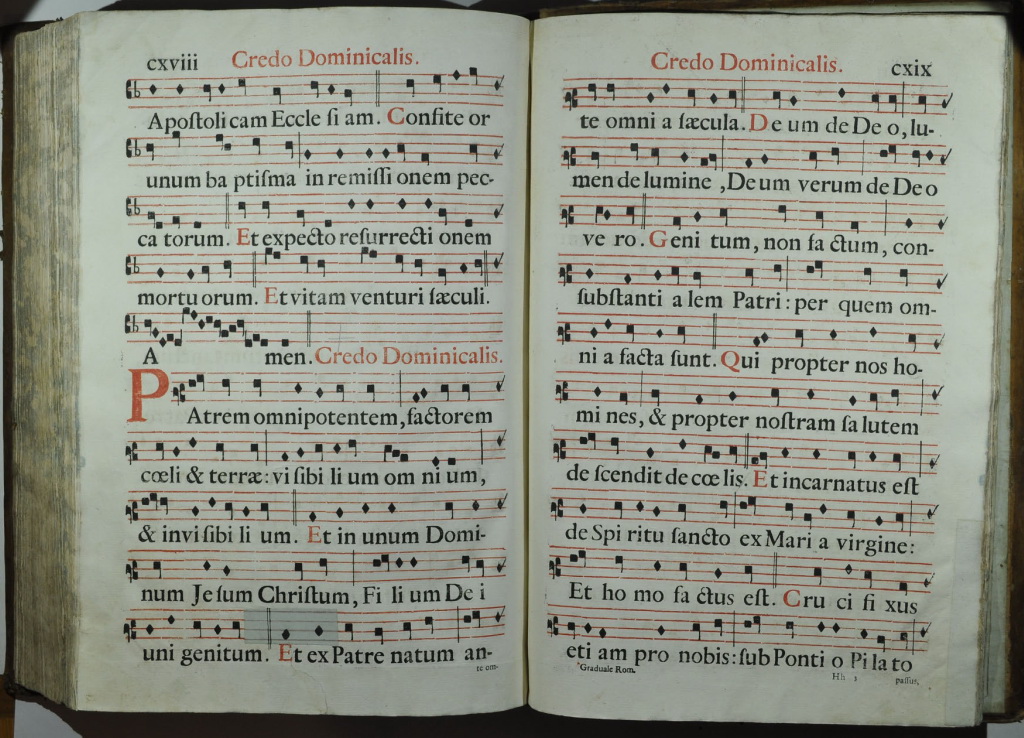 cxviii Credo Dominicalis.
Apoſtoli cam Eccle ſi am. Confite or
unum ba ptiſma in remiſſi onem pec-
ca torum. Et expecto reſurrecti onem
mortu orum. Et vitam venturi ſæculi.
A men. Credo Dominicalis.
PAtrem omnipotentem, factorem
cœli & terræ: vi ſibi li um om ni um,
& invi ſibi li um. Et in unum Domi-
num Je ſum Chriſtum, Fi li um De i
uni genitum. Et ex Patre natum an-
te om-
Credo Dominicalis. cxix
te omni a ſæcula. De um de De o, lu-
men de lumine , De um verum de De o
ve ro. Geni tum, non fa ctum, con-
ſubſtanti a lem Patri : per quem om-
ni a facta ſunt. Qui propter nos ho-
mi nes, & propter noſtram ſa lutem
de ſcendit de cœ lis. Et incarnatus eſt
de Spi ritu ſancto ex Mari a virgine:
Et ho mo fa ctus eſt. Cru ci fi xus
eti am pro nobis: ſub Ponti o Pi la to
Graduale Rom. Hh 3 paſſus,